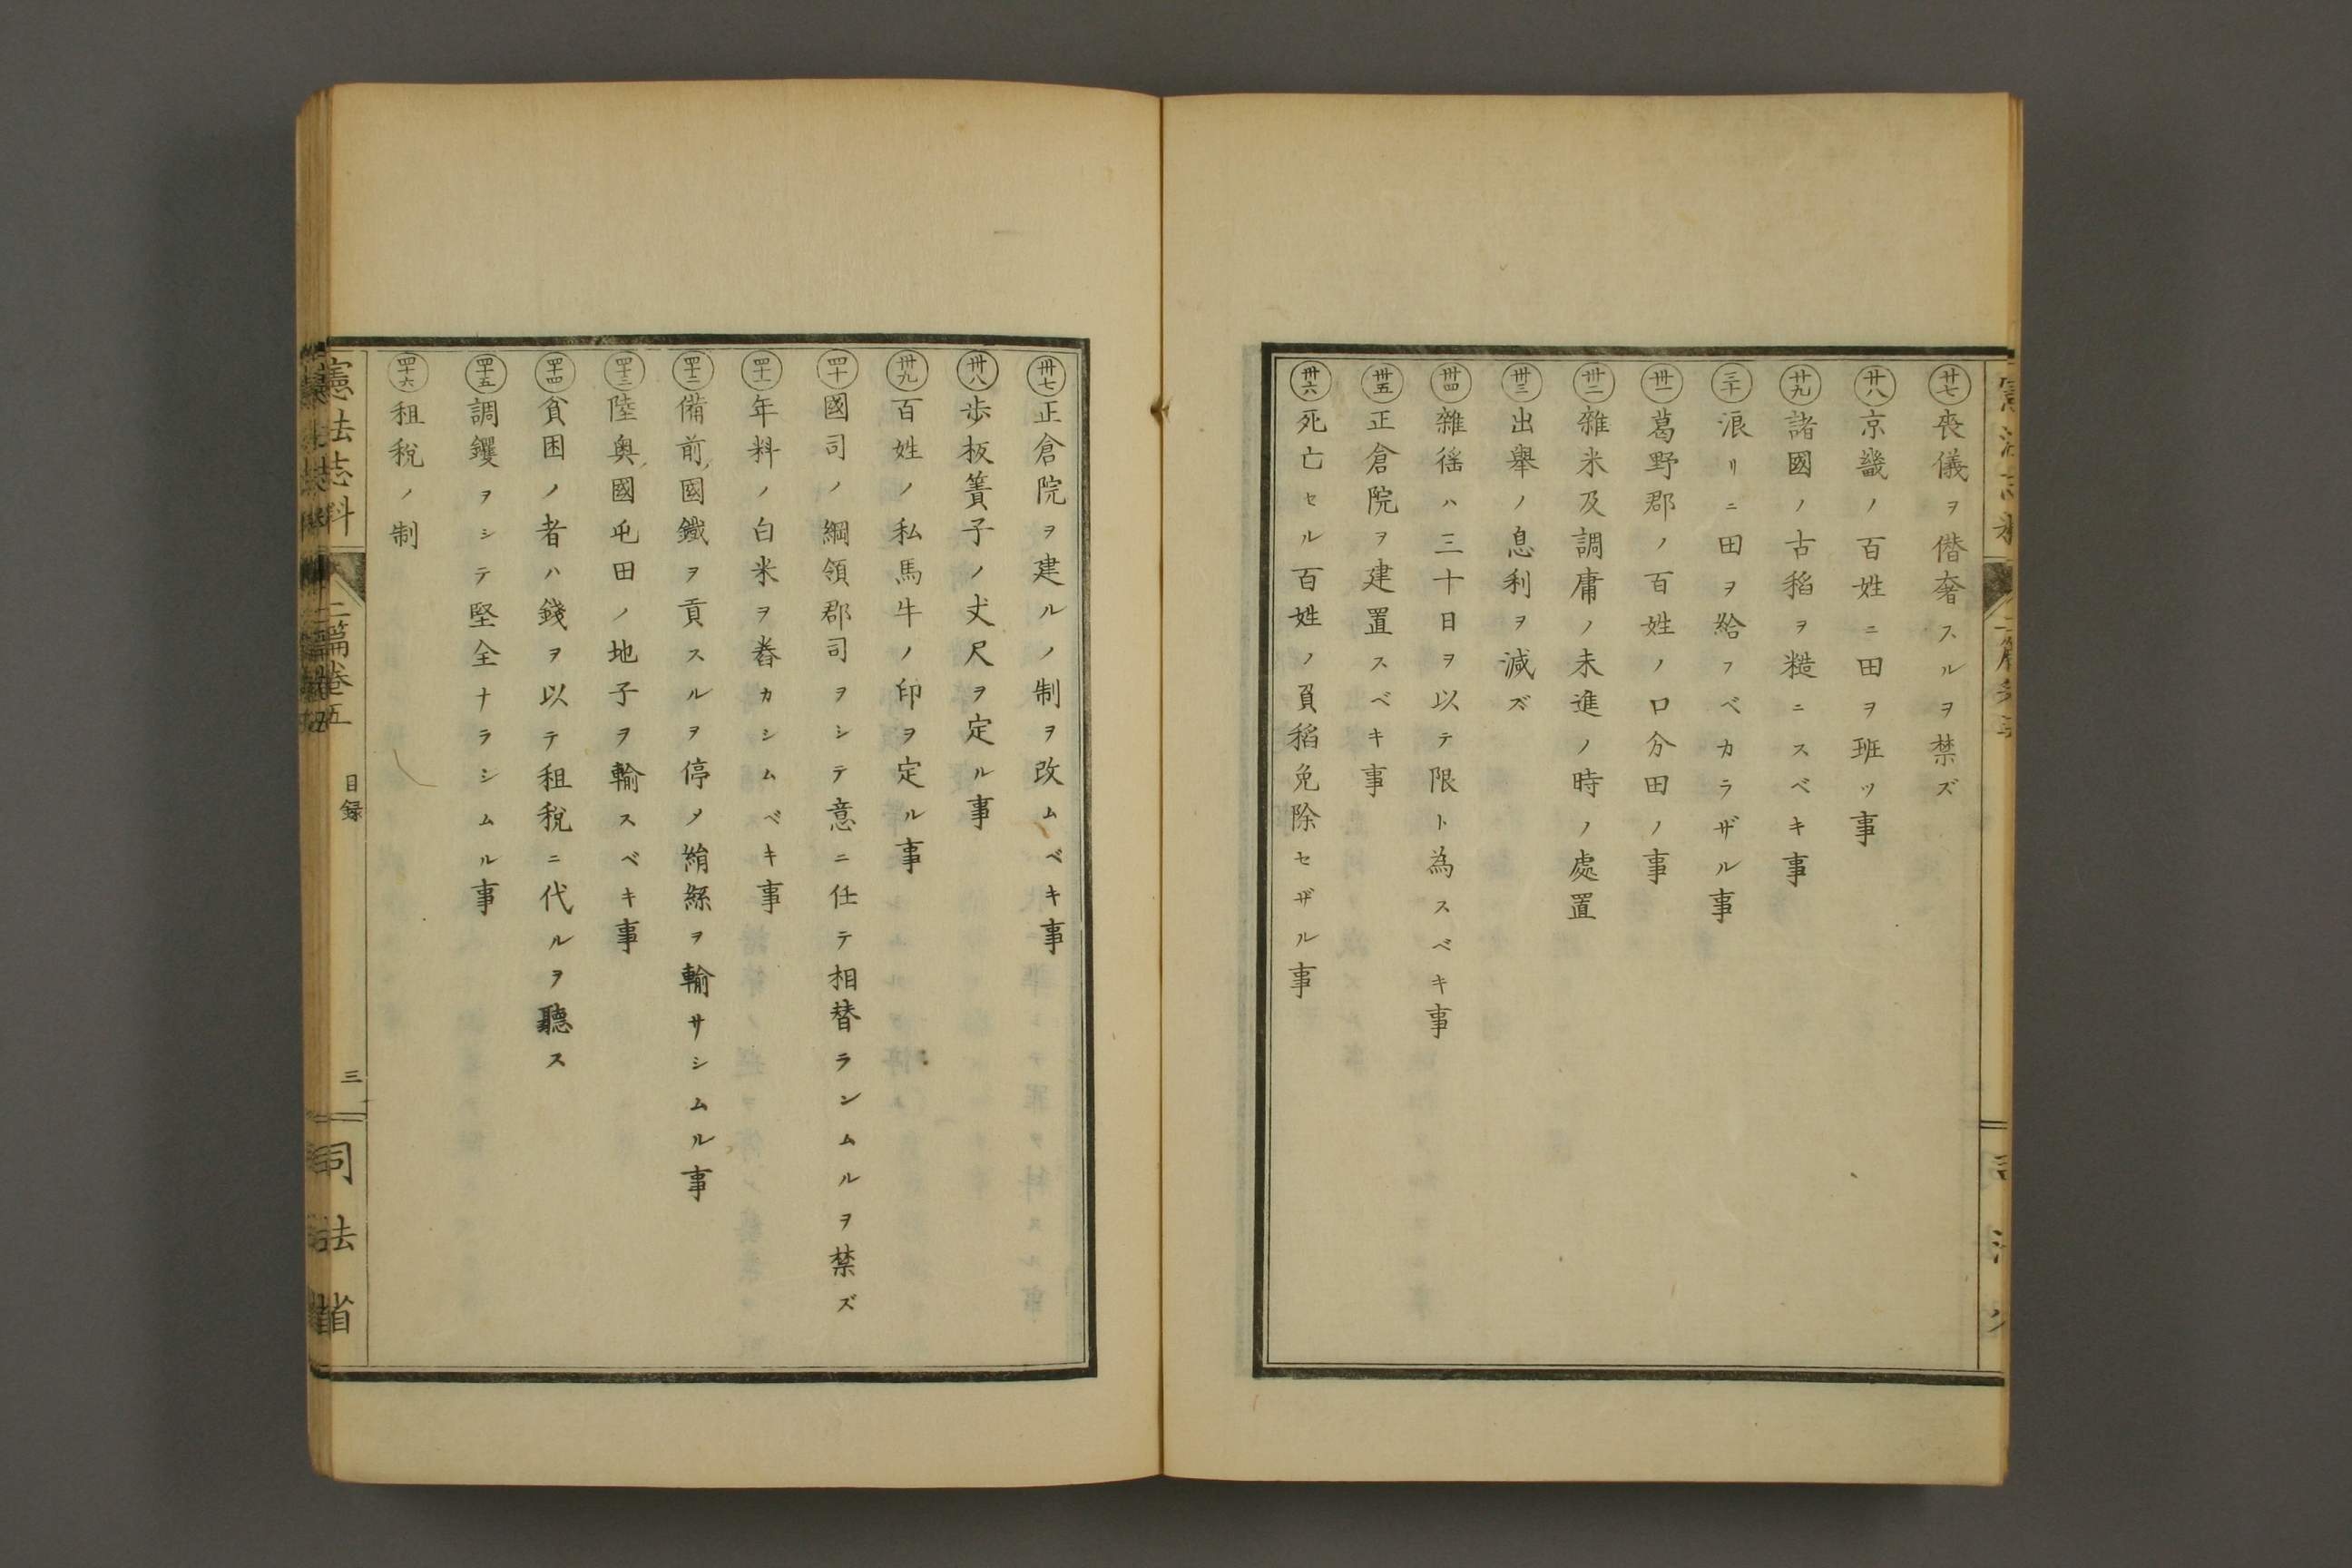 廿七喪儀ヲ僭奢スルヲ禁ズ
廿八京畿ノ百姓ニ田ヲ班ツ事
廿九諸國ノ古稻ヲ糙ニスベキ事
三十浪リニ田ヲ給フベカラザル事
丗一葛野郡ノ百姓ノ口分田ノ事
丗二雜米及調庸ノ未進ノ時ノ處置
丗三出擧ノ息利ヲ減ズ
丗四雜徭ハ三十日ヲ以テ限ト為スベキ事
丗五正倉院ヲ建置スベキ事
丗六死亡セル百姓ノ負稻免除セザル事
丗七正倉院ヲ建ルノ制ヲ改ムベキ事
丗八歩板簀子ノ丈尺ヲ定ル事
丗九百姓ノ私馬牛ノ印ヲ定ル事
四十國司ノ綱領郡司ヲシテ意ニ任テ相替ランムルヲ禁ズ
四十一年料ノ白米ヲ舂カシムベキ事
四十二備前國鐵ヲ貢スルヲ停メ絹綿ヲ輸サシムル事
四十三陸奥國屯田ノ地子ヲ輸スベキ事
四十四貧困ノ者ハ錢ヲ以テ租税ニ代ルヲ聽ス
四十五調钁ヲシテ堅全ナラシムル事
四十六租税ノ制
憲法志料
二篇卷五
目録
三
司法省